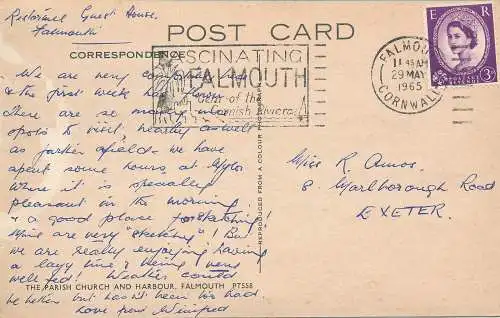 Restormel Guest House.
Falmouth
POST CARD
CORRESPONDENCE
FASCINATING
FALMOUTH
Gem of the
Cornish Riviera
FALMOUTH
11 45 AM
29 MAY
1965
CORNWALL
E R
3D
We are very comfortable
& the first week has flown
there are so many
spots to visit, nearby as well
as farther afield - we have
spent some hours at Mylor
where it is specially
pleasant in the morning
& a good place for sketching!
Mine are very "sketchy"! But
we are really enjoying having
a lazy time & being very
well fed! Weather could
THE PARISH CHURCH AND HARBOUR, FALMOUTH PT558
be better but hasn't been too bad
Love from Winifred
REPRODUCED FROM A COLOUR PHOTOGRAPH
Miss R. Amos.
8. Marlborough Road
EXETER.